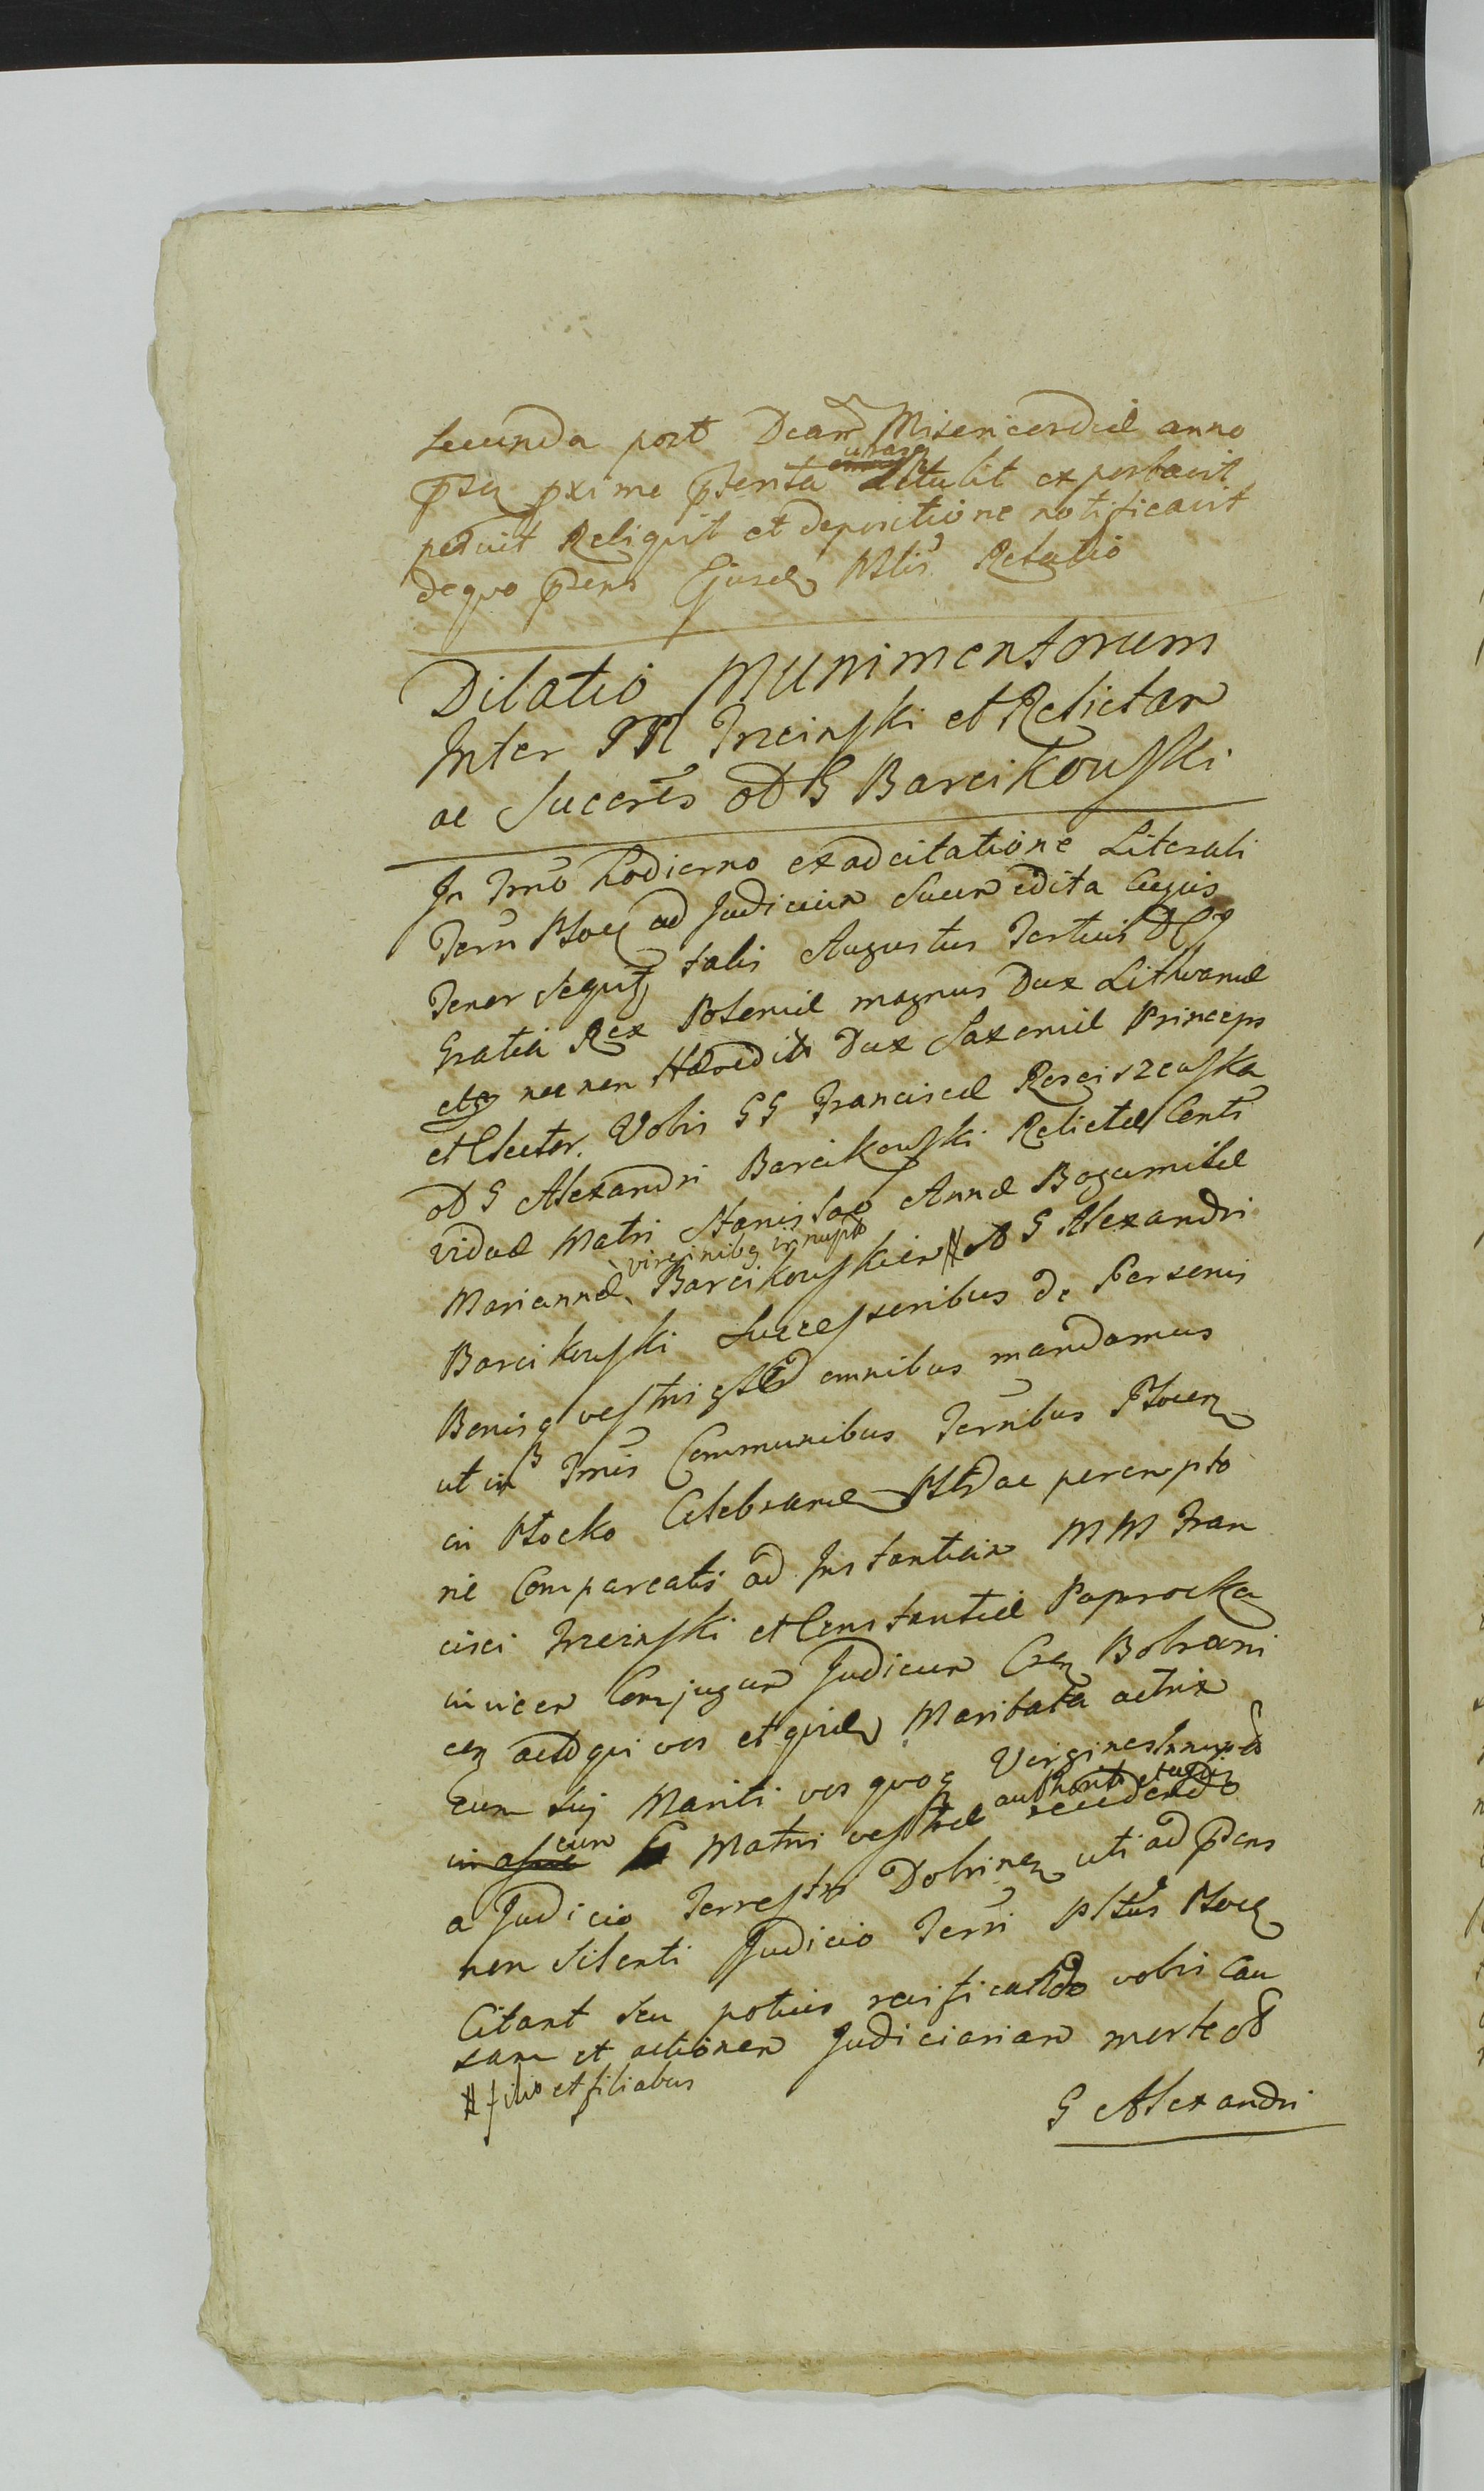 secunda post Dcam Misericordiæ anno
pxime detulit exportavit
posuit Reliquit et depositione notificavit
de quo pñs Ejusd Mlis Relatio
Dilatio Munimentorum
Inter Trzcinski et Relictam
ac Succres od G Barcikowski
In Trno hodierno ex adcitatione Literali
Terri Ploc ad Judicium suum edita Cujus
Tenor sequit talis Augustus Tertius DEJ
Gratia Rex Poloniæ magnus Dux Lithvaniæ
etc nec non Hæredit Dux Saxoniæ Princeps
et Elector. Vobis GG Franciscæ Rosciszewska
od G Alexandri Barcikowski Relictæ
viduæ Matri Stanislao Annæ Bogumilæ
Mariannæ virginibq innupt Barcikowskim # od G Alexandri
Barcikowski Successoribus de Personis
Bonisq vestris omnibus mandamus
ut in Trnis Communibus Ternibus Plocen
in Plocko Celebrand ac perempto
rie Compareatis ad Instantiam MM Fran
cisci Trzcinski et Constantiæ Paprocka
invicem Conjugum Judicum Bobrowni
cen qui vos et quid Maritata actrix
cum suj Mariti vos quoq Virgines innupt
cum Matri vestræ recedendo
a Judicio Terrestri Dobrinen uti ad pñs
non silenti Judicio Terri Ploc
Citant seu potius reificando vobis Cau
sam et actionem Judiciariam morte od
# filio et filiabus
G Alexandri